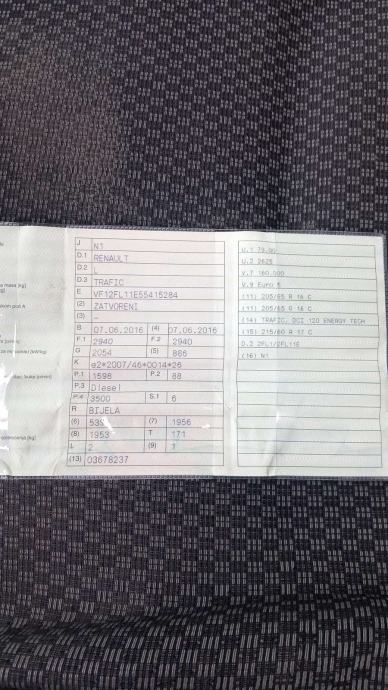 J N1
D.1 RENAULT
D.2 L
D.3 TRAFIC
E VF12FL11E55415284
(2) ZATVORENI
(3) -
B 07.06.2016 (4) 07.06.2016
F.1 2940 F.2 2940
G 2054 (5) 886
K e2*2007/46*0014*26
P.1 1598 P.2 88
P.3 Diesel
P.4 3500 S.1 6
R BIJELA
(6) (7) 1956
(8) 1953 T 171
L 2 (9) 1
(13) 03678237
U.1
U.2 2625
V.7 160.000
V.9 Euro 5
(11) 205/65 R 16 C
(11) 205/65 R 16 C
(14) TRAFIC, DCI 120 ENERGY TECH
(15) 215/60 R 17 C
D.2 2FL1/2FL11E
(16) N1